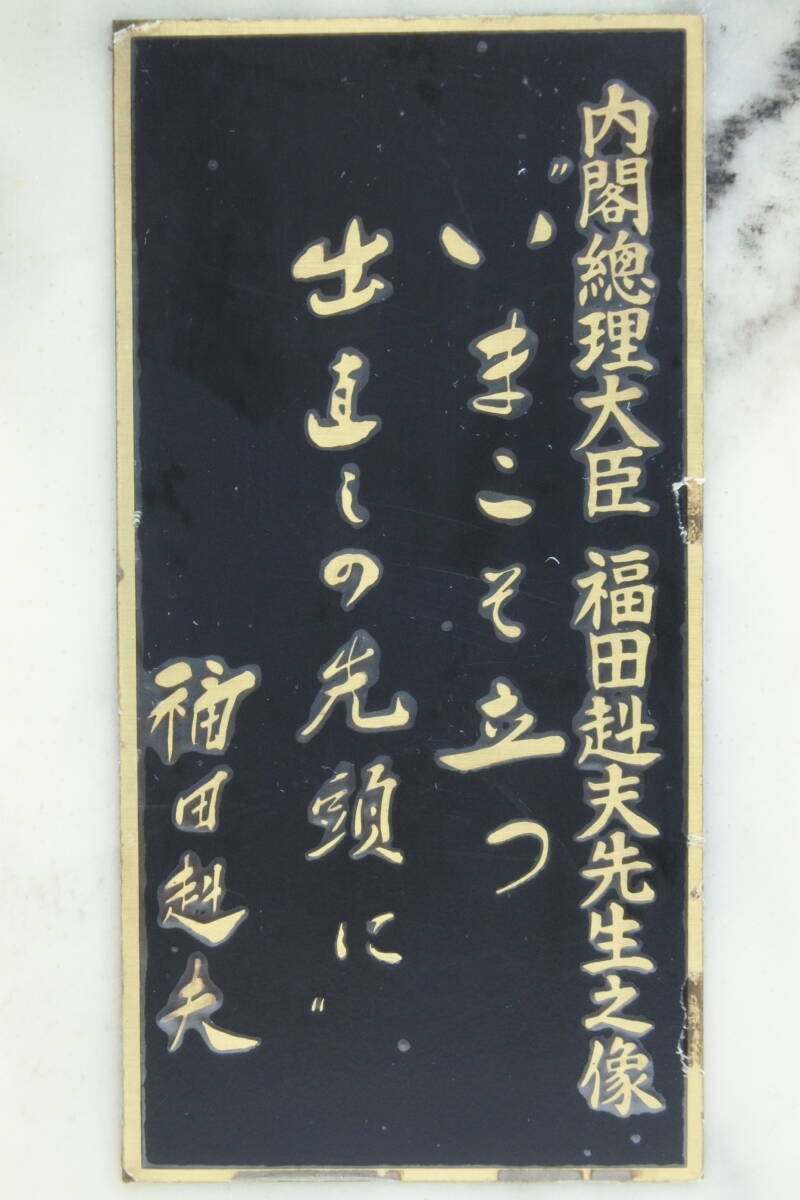 内閣總理大臣 福田赳夫先生之像
〃いまこそ立つ
出直しの先頭に〃
福田赳夫